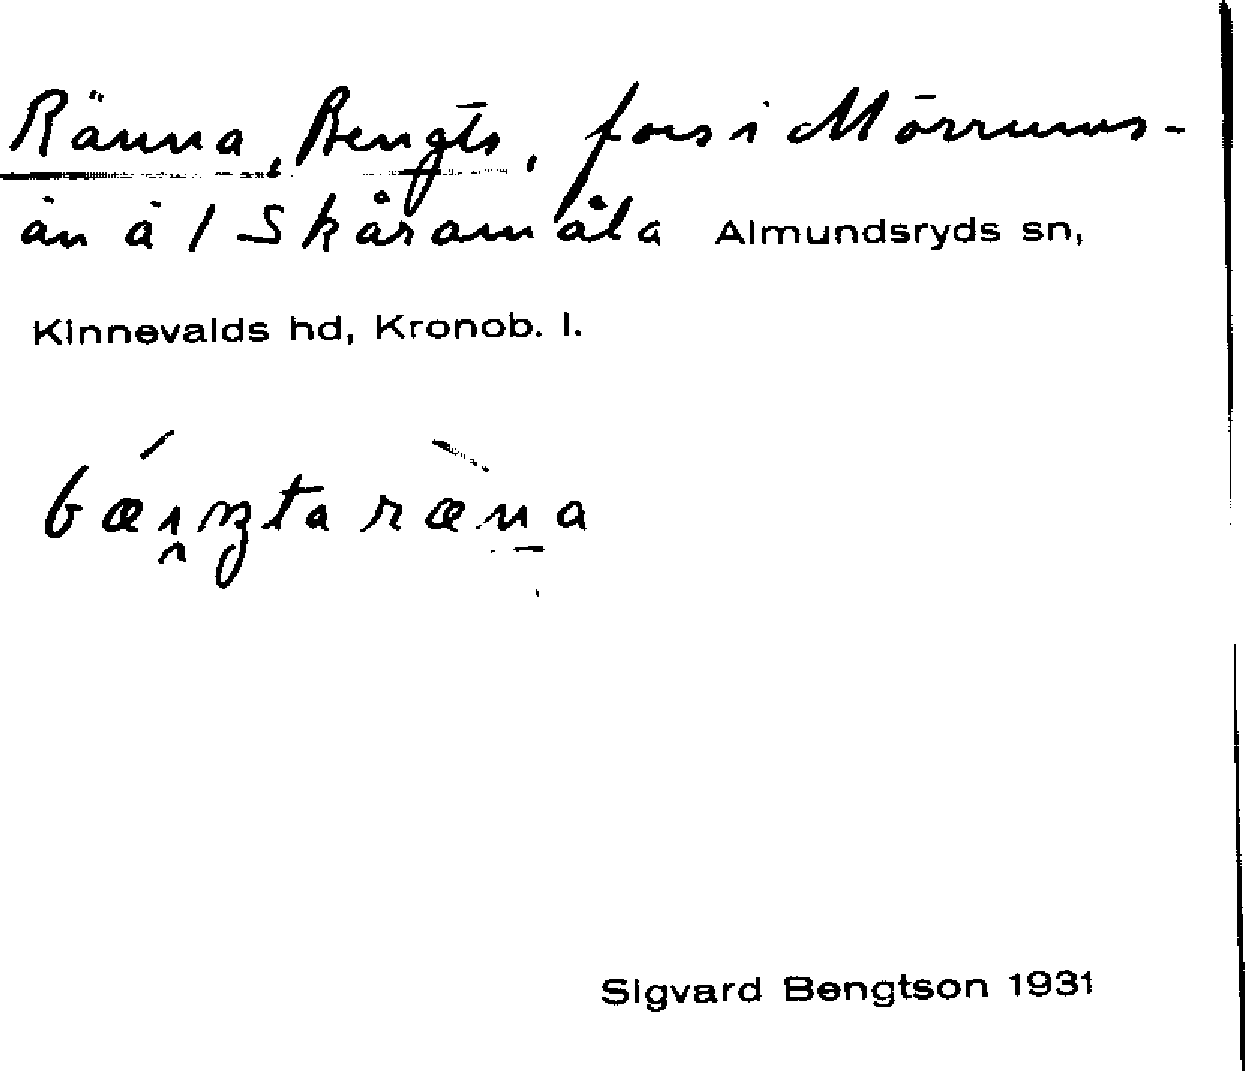 Ränna, Bengts, fors i Mörrums-
ån å 1 Skåramåla Almundsryds sn,
Kinnevalds hd, Kronob. l.
ræna
Sigvard Bengtson 1931